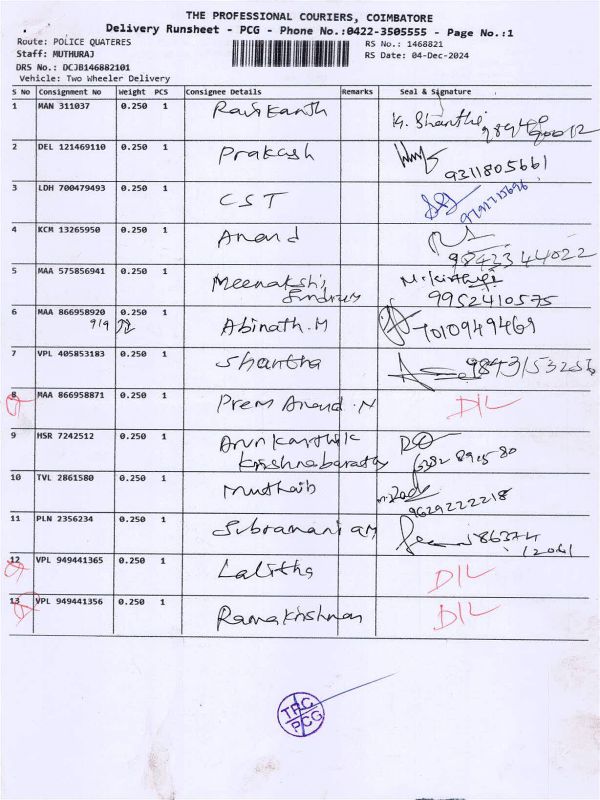 THE PROFESSIONAL COURIERS, COIMBATORE
Delivery Runsheet - PCG - Phone No.:0422-3505555 - Page No.:1
Route: POLICE QUATERES RS No.: 1468821
Staff: MUTHURAJ RS Date: 04-Dec-2024
DRS No.: DCJB146882101
Vehicle: Two Wheeler Delivery
S No Consignment No Weight PCS Consignee Details Remarks Seal & Signature
1 MAN 311037 0.250 1 Ravikanth K. Shanthi
2 DEL 121469110 0.250 1 Prakash 9311805661
3 LDH 700479493 0.250 1 CST
4 KCM 13265950 0.250 1 Anand 9842344022
5 MAA 575856941 0.250 1 Meenakshi M. Kirthugi
9952410575
6 MAA 866958920 0.250 1 Abinath.M 7010949469
919
7 VPL 405853183 0.250 1 Shantha
8 MAA 866958871 0.250 1 Prem Anand.N D/L
9 HSR 7242512 0.250 1 Arun Karthik
Krishnabarathy
10 TVL 2861580 0.250 1 Muthaib
9629222218
11 PLN 2356234 0.250 1 Subramaniam
12 VPL 949441365 0.250 1 Lalitha D/L
13 VPL 949441356 0.250 1 Ramakrishnan D/L
TPC
PCG